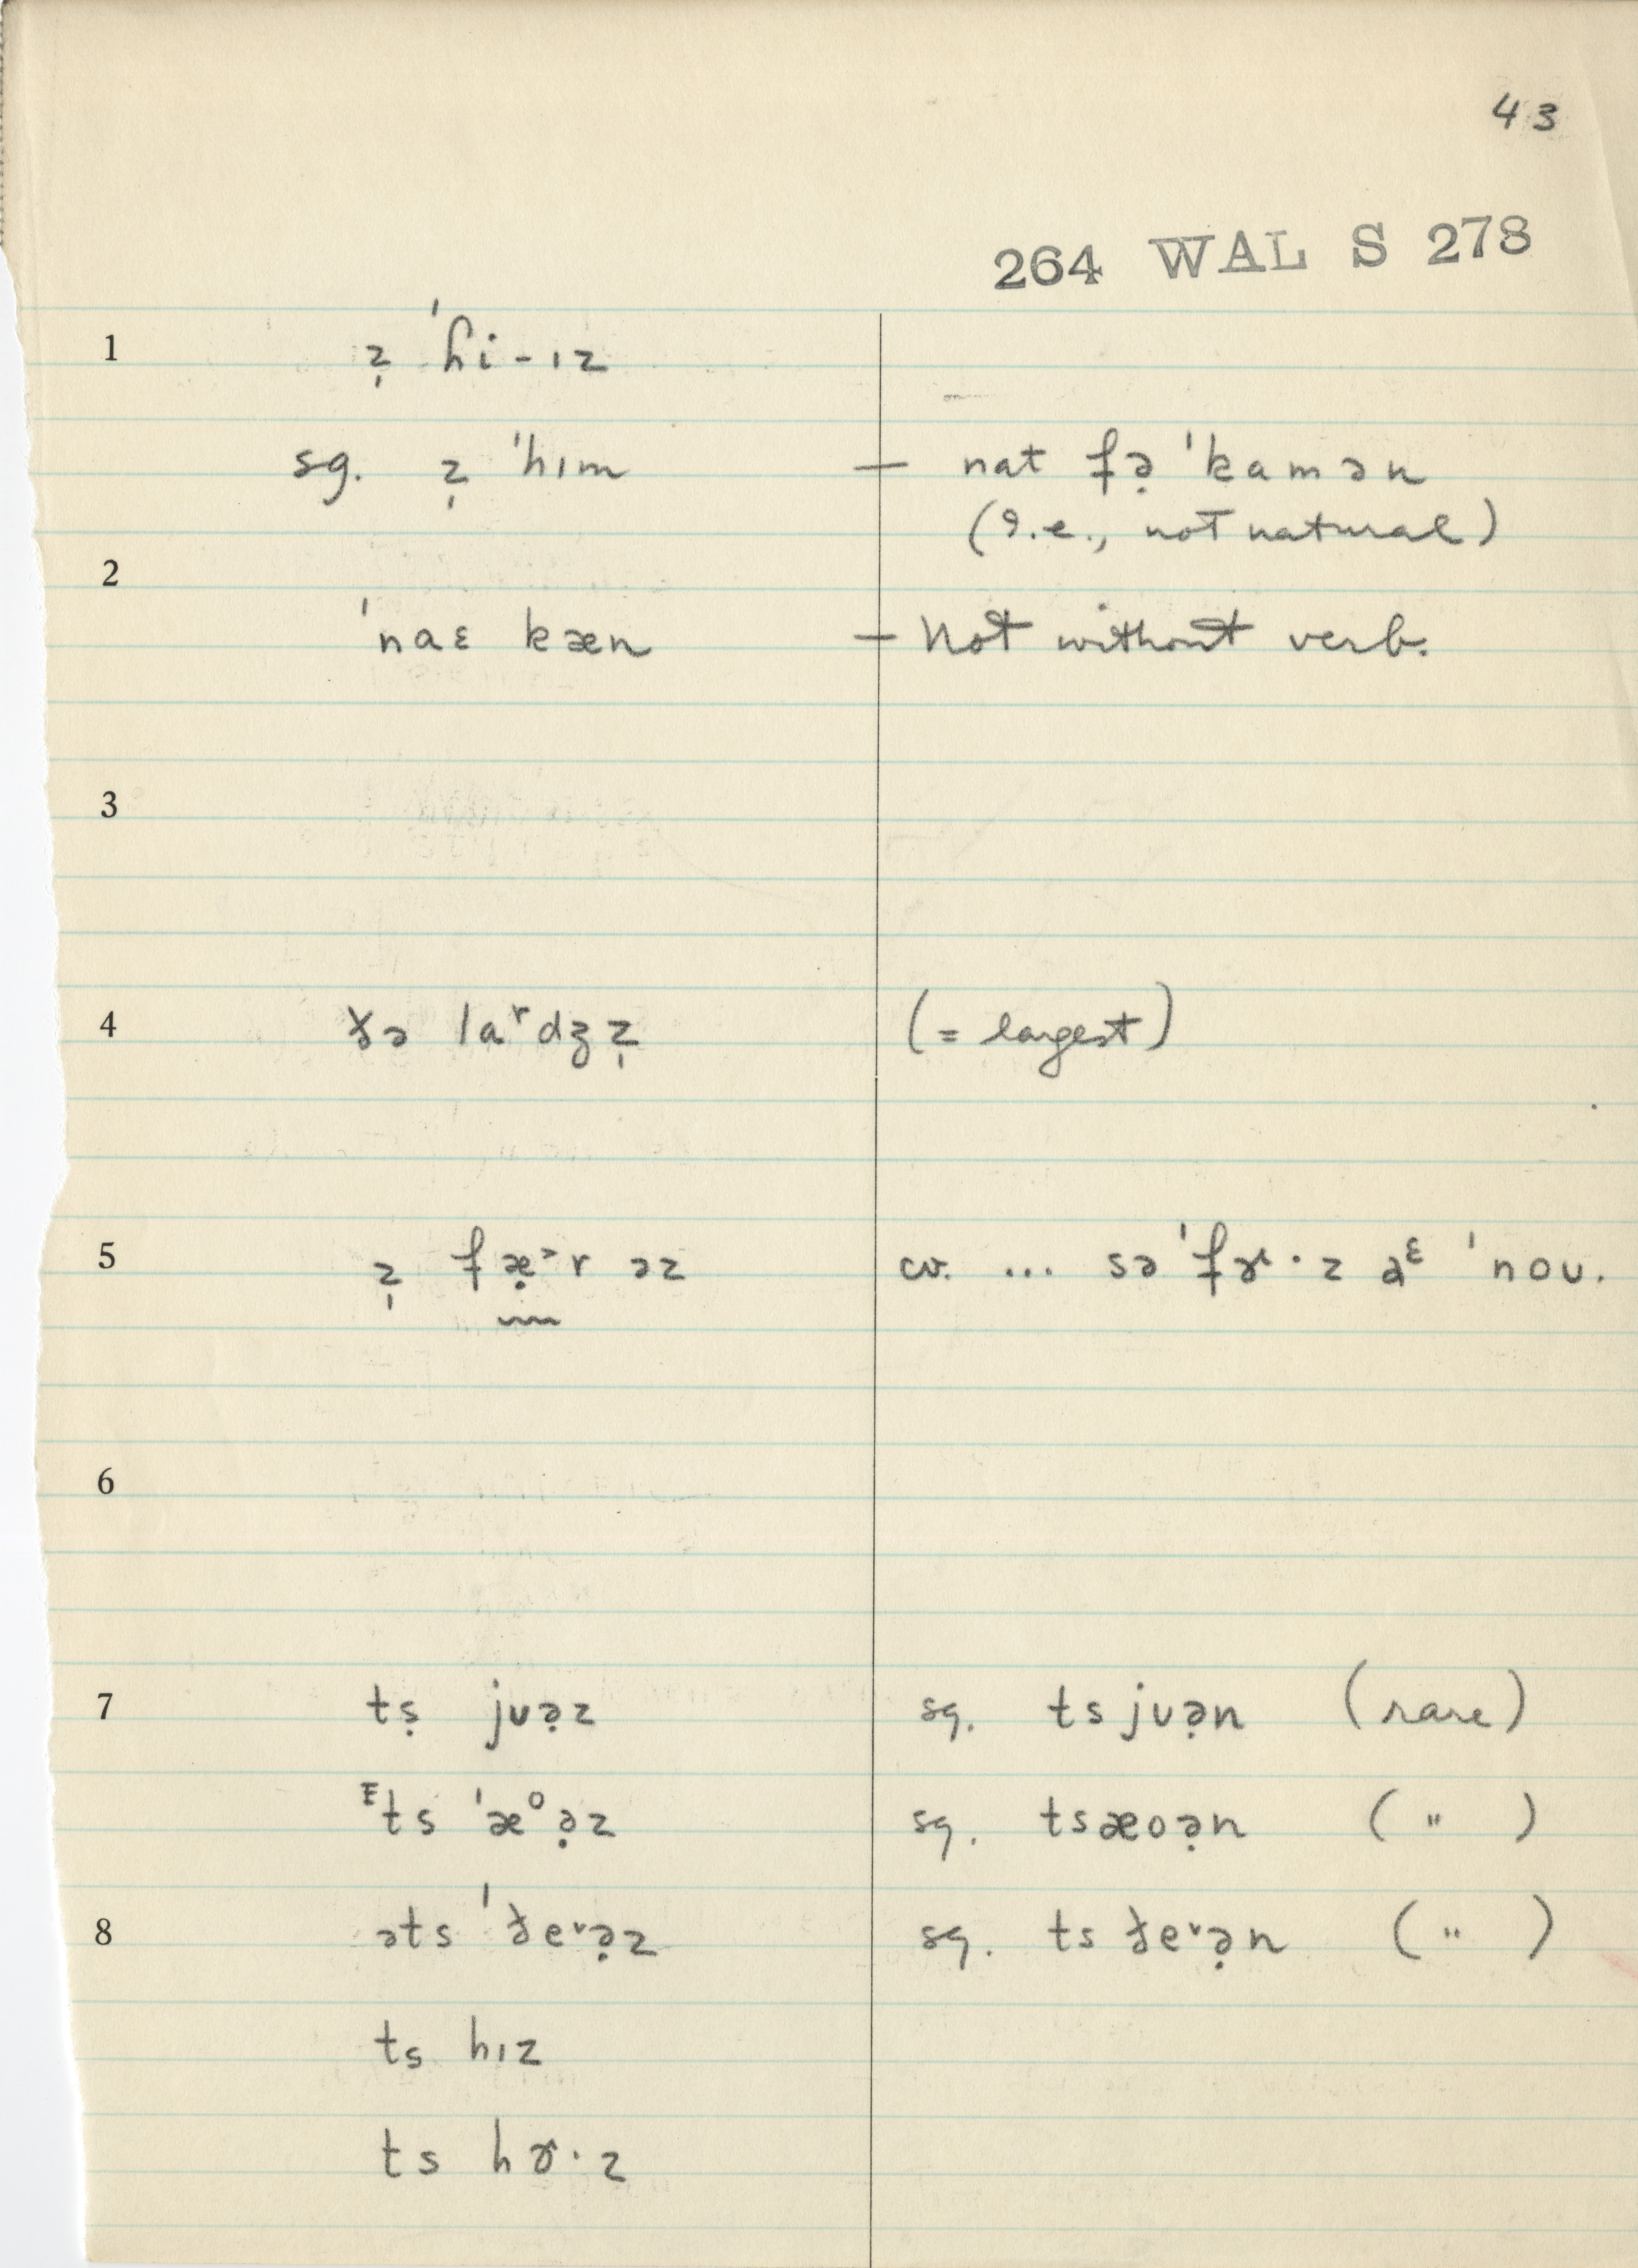 43
264 WAL S 278
1 z̩ ˈɦi-ɪz
sg. z̩ ˈhɪm — nat fə̣ ˈkamən
(I.e., not natural)
2
ˈnaɛ kæn — Not without verb.
3
4 ðə laʳdʒz̩ (= largest)
5 z̩ fæ̣ᵊr əz cv. ... sə ˈfɝ·z aᵋ ˈnoʊ.
6
7 tṣ jʊə̣z sg. tsjʊə̣n (rare)
ᴱts ˈæᴼə̣z sg. tsæoə̣n ( " )
8 əts ˈðeᵛə̣z sg. ts ðeᵛə̣n ( " )
ts hɪz
ts hɝ·z